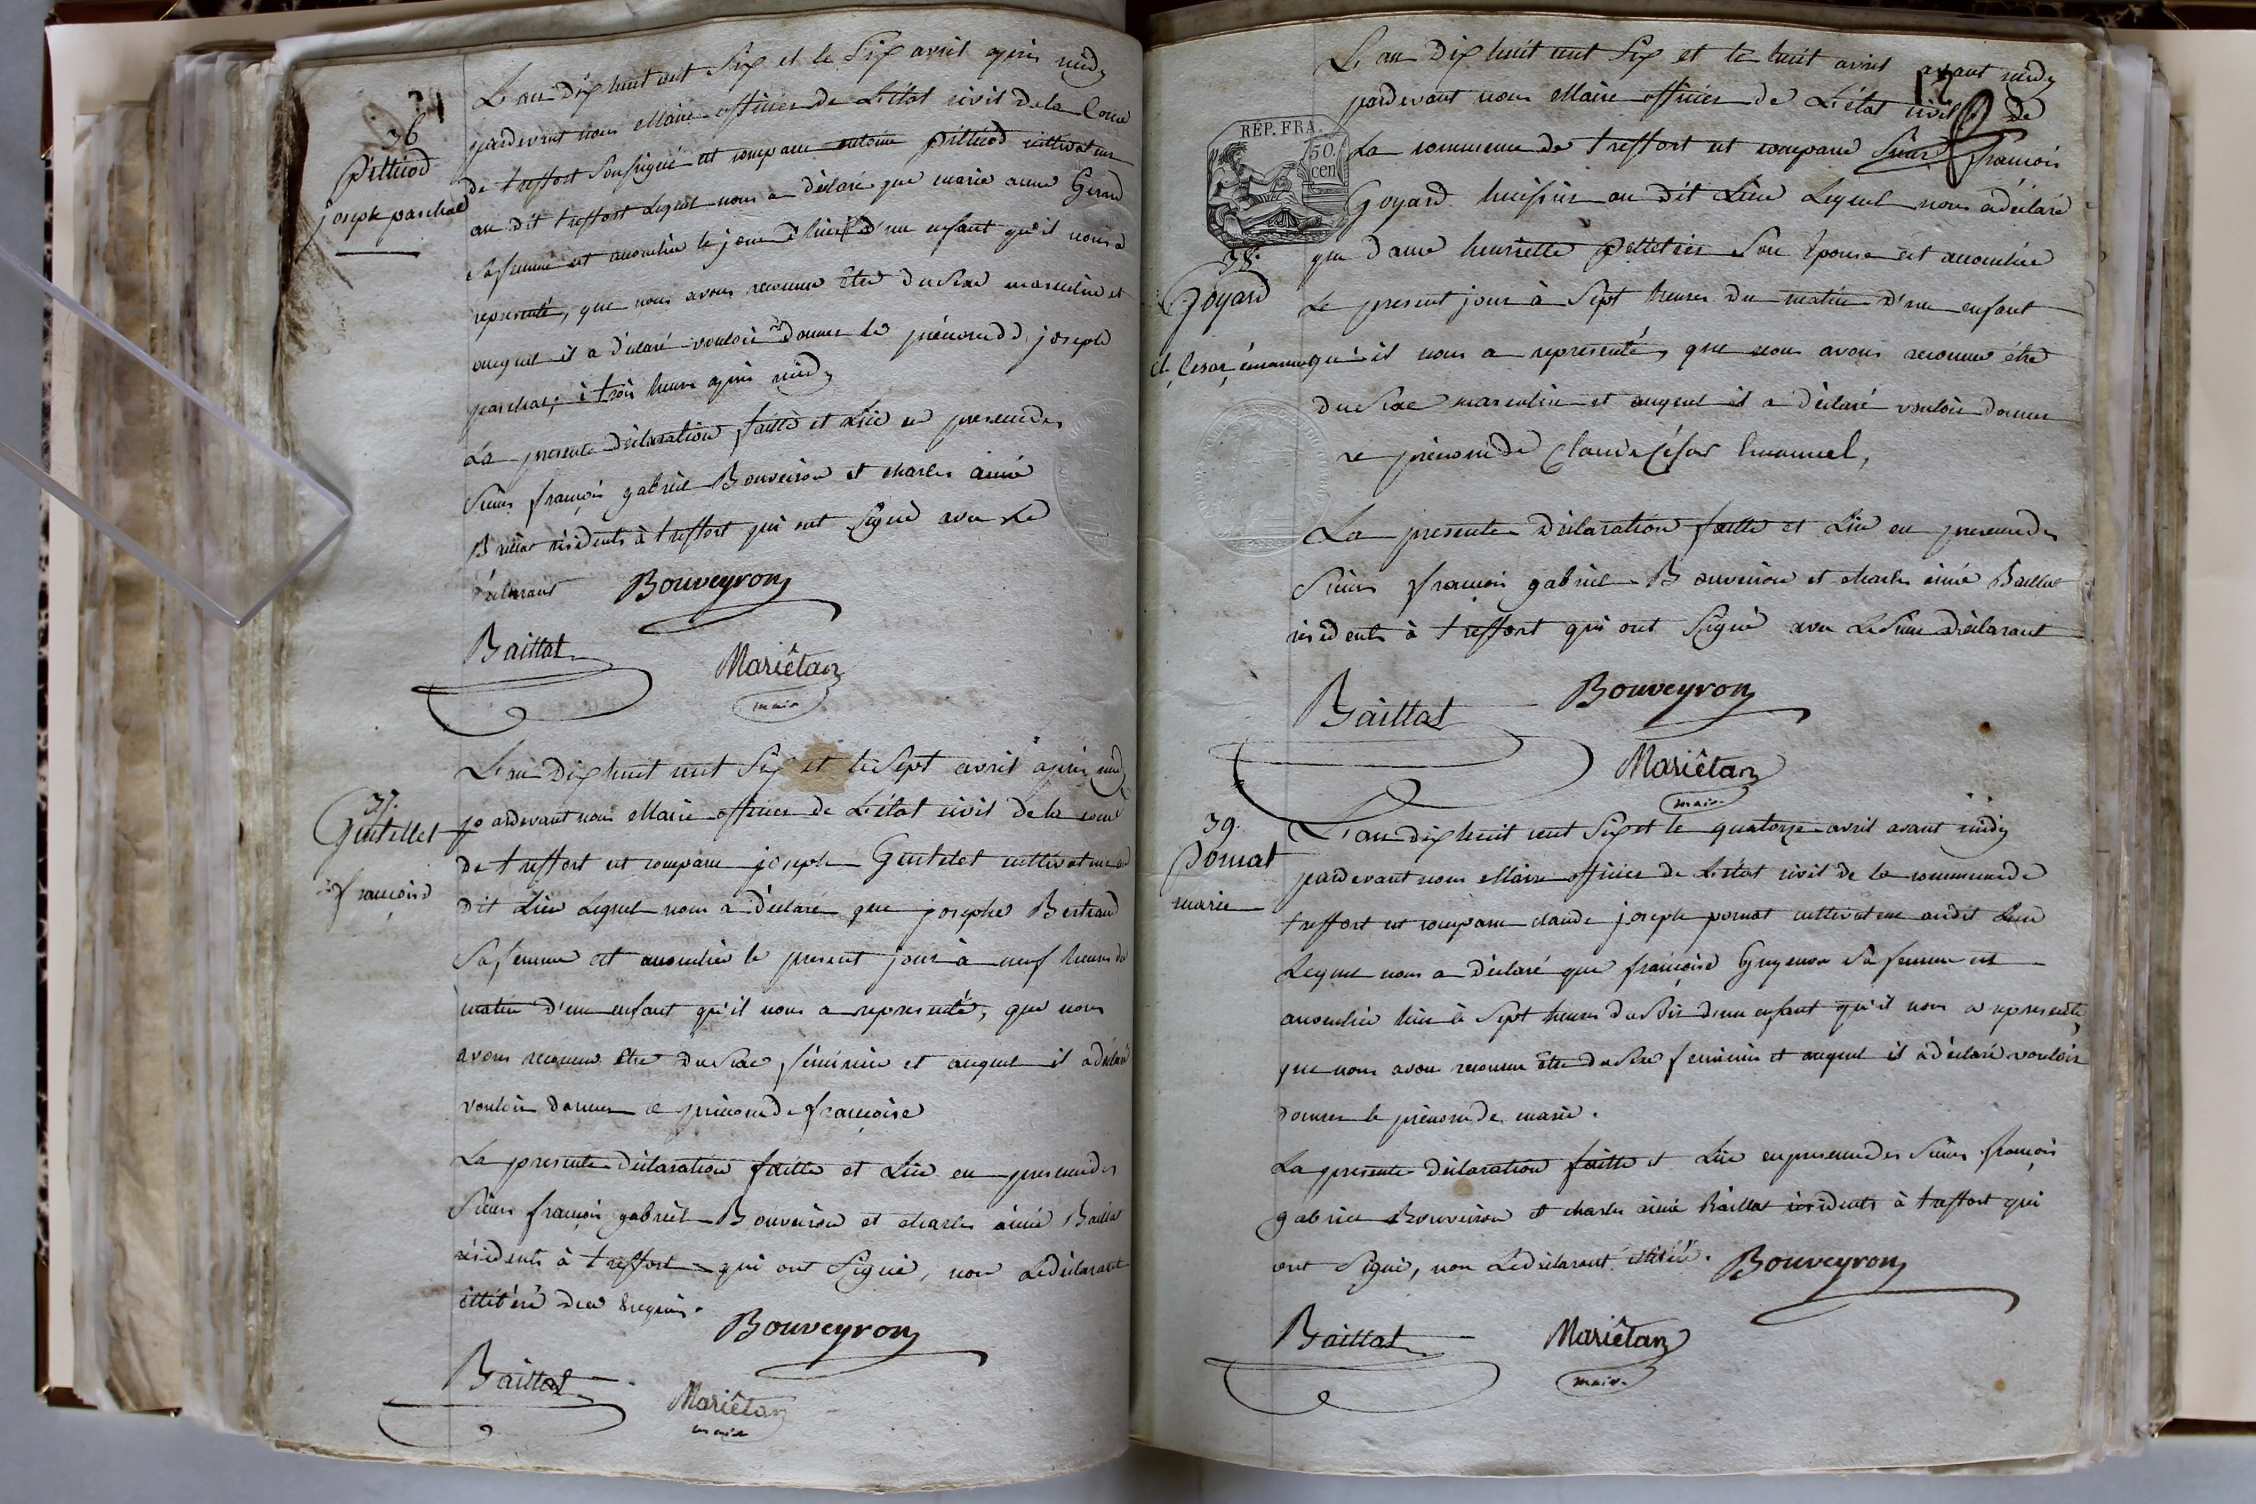 36
pillliod
joseph paschal
L'an Dix huit cent Six et le Six avril après midy
pardevant nous Maire officier de L'état civil de la Come
de treffort Soussigné est comparu antoine pilliod cultivateur
au dit treffort Lequel nous a déclaré que marie anne Gerard
Sa femme est accouchée le jour d'hier d'un enfant qu'il nous a
representé, que nous avons reconnu être du Sexe masculin et
auquel il a déclaré vouloir donner le prénom de joseph
paschal, à trois heures après midy
La presente déclaration faitte et Lüe en presence des
Sieurs françois gabriel Bouveiron et charles aimé
Baillat résidents à treffort qui ont Signé avec Le
déclarant Bouveyron
Baillat
Mariêtan
maire
37.
Gentillet
françoise
L'an Dix huit cent Six et le Sept avril après midy
pardevant nous Maire officier de L'état civil de la come
de treffort est comparu joseph Gentilet cultivateur au
dit Lieu Lequel nous a déclaré que josephe Bertrand
Sa femme est accouchée le present jour à neuf heures du
matin d'un enfant qu'il nous a representé, que nous
avons reconnu être du Sexe féminin et auquel il a déclaré
vouloir donner ce prénom de françoise
La presente déclaration faitte et Lüe en presence des
Sieurs françois gabriel Bouveiron et charles aimé Baillat
résidents à treffort qui ont Signé, non Le déclarant
illitéré de ce requis.
Bouveyron
Baillat
Mariêtan
maire
RÉP. FRA.
50.
cen
38.
Goyard
Cl. Cesar émanuel
L'an Dix huit cent Six et le huit avril avant midy
pardevant nous Maire officier de L'état civil de
La commune de treffort est comparu Sieur françois
Goyard huissier au dit Lieu Lequel nous a déclaré
que dame henriette pelletier Son Epouse est accouchée
Le present jour à Sept heures du matin d'un enfant
qu'il nous a representé, que nous avons reconnu être
du Sexe masculin et auquel il a déclaré vouloir donner
ce prénom de Claude César Emanuel,
La presente déclaration faitte et Lüe en presence des
Sieurs françois gabriel Bouveiron et charles aimé Baillat
résidents à treffort qui ont Signé avec Le Sieur déclarant
Baillat
Bouveyron
Mariêtan
maire
39.
pomat
marie
L'an dix huit cent Six et le quatorze avril avant midy
pardevant nous Maire officier de L'état civil de la commune de
treffort est comparu claude joseph pomat cultivateur audit Lieu
Lequel nous a déclaré que françoise Guyenon Sa femme est
accouchée hier à Sept heures du Soir d'un enfant qu'il nous a representé,
que nous avons reconnu être du Sexe feminin et auquel il a déclaré vouloir
donner le prénom de marie.
La presente déclaration faitte et Lüe en presence des Sieurs françois
gabriel Bouveiron et charles aimé Baillat résidents à treffort qui
ont Signé, non Le déclarant illitéré. Bouveyron
Baillat
Mariêtan
maire